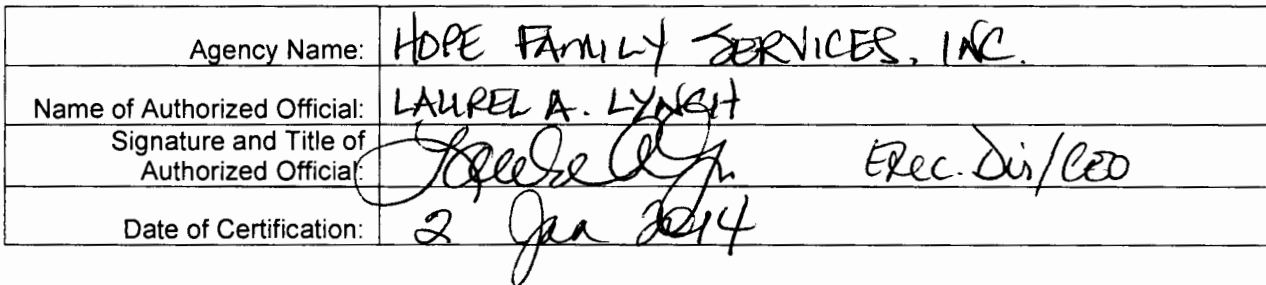 Agency Name: HOPE FAMILY SERVICES, INC.
Name of Authorized Official: LAUREL A. LYNCH
Signature and Title of
Authorized Official: Exec. Dir/CEO
Date of Certification: 2 Jan 2014